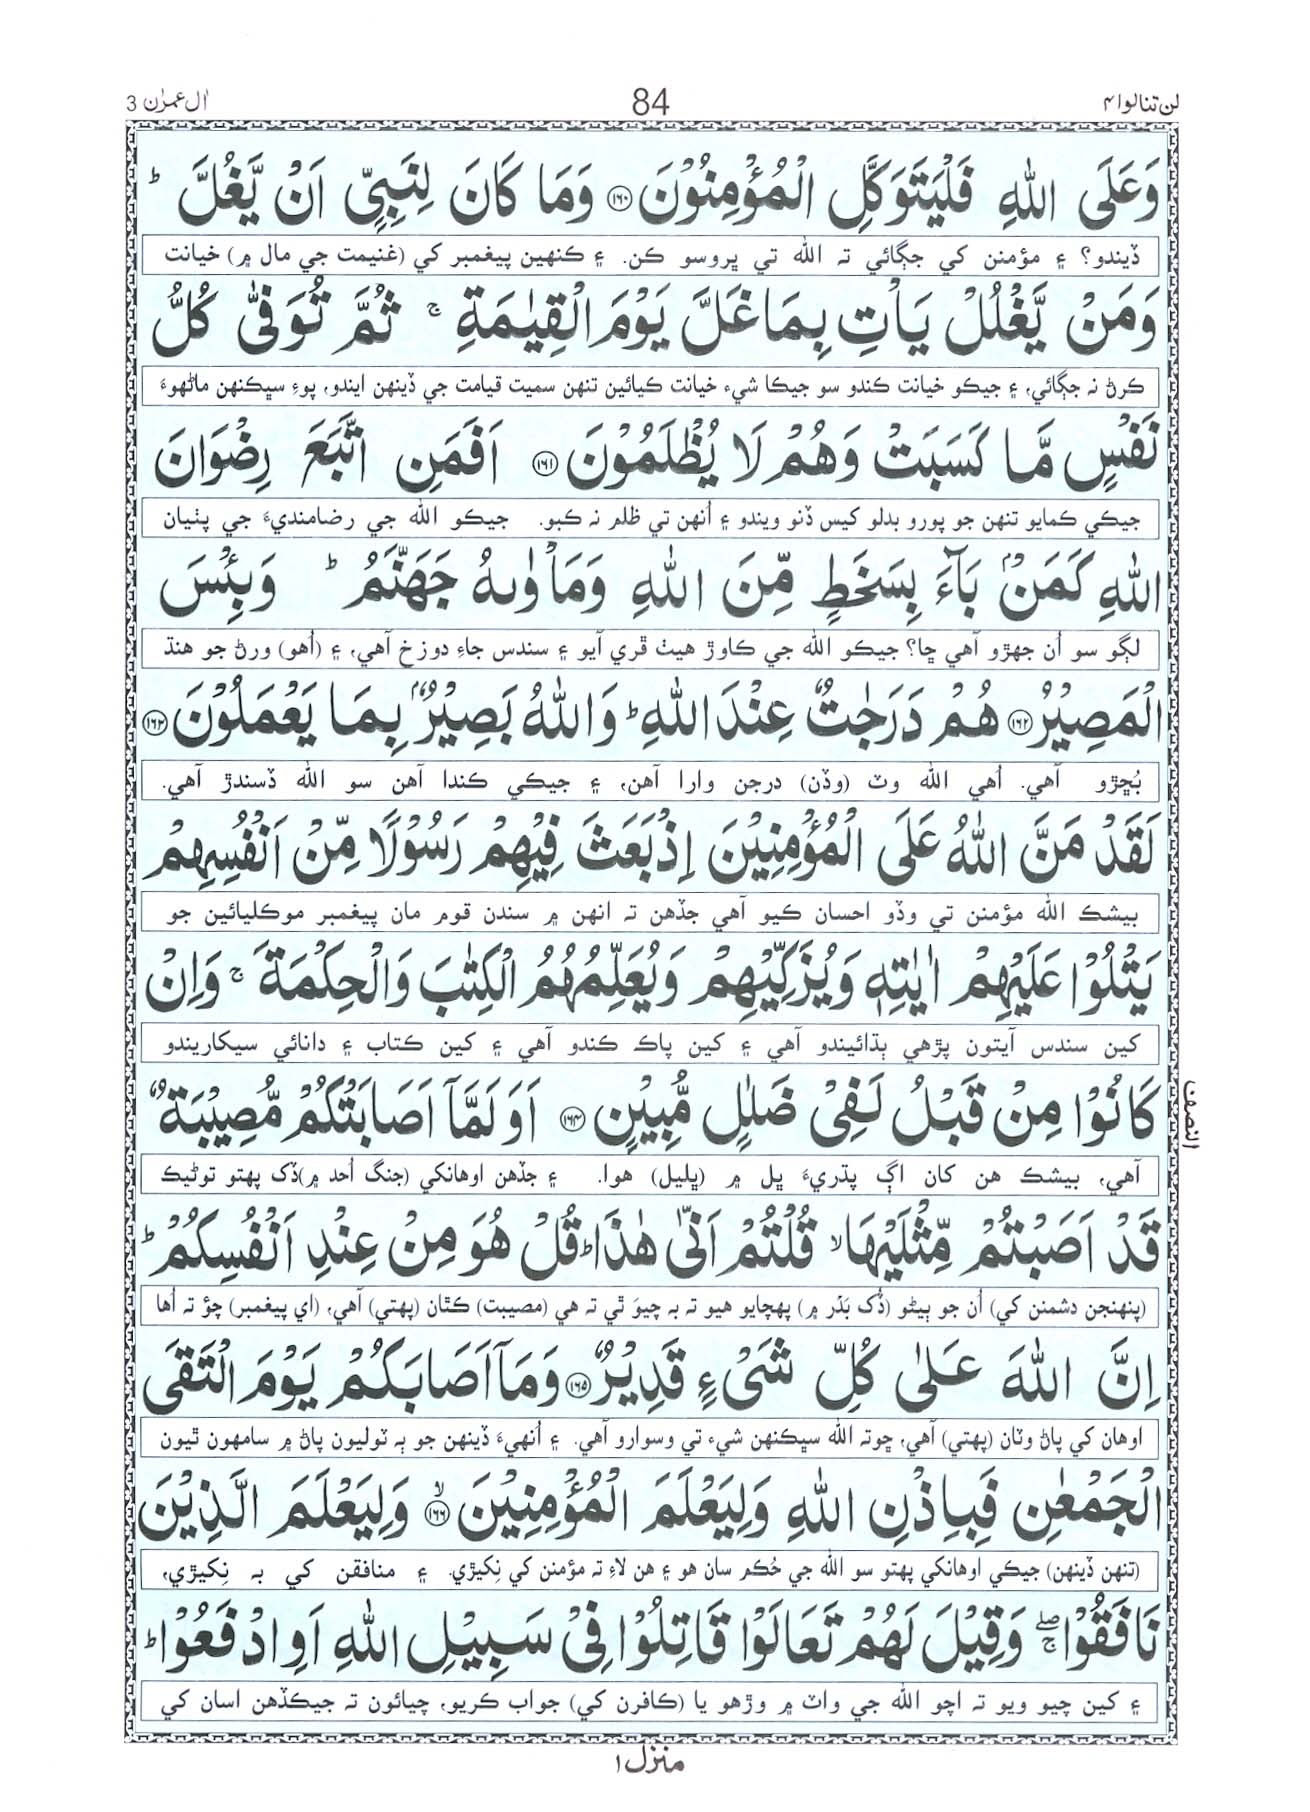 لن تنالوا ۴
84
اٰل عمرٰن 3
وَعَلَى اللّٰهِ فَلْيَتَوَكَّلِ الْمُؤْمِنُوْنَ ۝۱۶۰ وَمَا كَانَ لِنَبِيٍّ اَنْ يَّغُلَّ ؕ
ڏيندو؟ ۽ مؤمنن کي جڳائي تہ اللہ تي ڀروسو ڪن. ۽ ڪنهين پيغمبر کي (غنيمت جي مال ۾) خيانت
وَمَنْ يَّغْلُلْ يَاْتِ بِمَا غَلَّ يَوْمَ الْقِيٰمَةِ ۚ ثُمَّ تُوَفّٰى كُلُّ
ڪرڻ نہ جڳائي، ۽ جيڪو خيانت ڪندو سو جيڪا شيء خيانت ڪيائين تنهن سميت قيامت جي ڏينهن ايندو، پوءِ سڀڪنهن ماڻهوءَ
نَفْسٍ مَّا كَسَبَتْ وَهُمْ لَا يُظْلَمُوْنَ ۝۱۶۱ اَفَمَنِ اتَّبَعَ رِضْوَانَ
جيڪي ڪمايو تنهن جو پورو بدلو کيس ڏنو ويندو ۽ اُنهن تي ظلم نہ ڪبو. جيڪو اللہ جي رضامنديءَ جي پٺيان
اللّٰهِ كَمَنْۢ بَآءَ بِسَخَطٍ مِّنَ اللّٰهِ وَمَاْوٰىهُ جَهَنَّمُ ؕ وَبِئْسَ
لڳو سو اُن جهڙو آهي ڇا؟ جيڪو اللہ جي ڪاوڙ هيٺ ڦري آيو ۽ سندس جاءِ دوزخ آهي، ۽ (اُهو) ورڻ جو هنڌ
الْمَصِيْرُ ۝۱۶۲ هُمْ دَرَجٰتٌ عِنْدَ اللّٰهِ ؕ وَاللّٰهُ بَصِيْرٌۢ بِمَا يَعْمَلُوْنَ ۝۱۶۳
بُڇڙو آهي. اُهي اللہ وٽ (وڏن) درجن وارا آهن، ۽ جيڪي ڪندا آهن سو اللہ ڏسندڙ آهي.
لَقَدْ مَنَّ اللّٰهُ عَلَى الْمُؤْمِنِيْنَ اِذْ بَعَثَ فِيْهِمْ رَسُوْلًا مِّنْ اَنْفُسِهِمْ
بيشڪ اللہ مؤمنن تي وڏو احسان ڪيو آهي جڏهن تہ انهن ۾ سندن قوم مان پيغمبر موڪليائين جو
يَتْلُوْا عَلَيْهِمْ اٰيٰتِهٖ وَيُزَكِّيْهِمْ وَيُعَلِّمُهُمُ الْكِتٰبَ وَالْحِكْمَةَ ۚ وَاِنْ
کين سندس آيتون پڙهي ٻڌائيندو آهي ۽ کين پاڪ ڪندو آهي ۽ کين ڪتاب ۽ دانائي سيکاريندو
كَانُوْا مِنْ قَبْلُ لَفِيْ ضَلٰلٍ مُّبِيْنٍ ۝۱۶۴ اَوَلَمَّآ اَصَابَتْكُمْ مُّصِيْبَةٌ
النصف
آهي، بيشڪ هن کان اڳ پڌريءَ ڀل ۾ (ڀليل) هوا. ۽ جڏهن اوهانکي (جنگ اُحد ۾) ڏک پهتو توڻيڪ
قَدْ اَصَبْتُمْ مِّثْلَيْهَا ۙ قُلْتُمْ اَنّٰى هٰذَا ؕ قُلْ هُوَ مِنْ عِنْدِ اَنْفُسِكُمْ ؕ
(پنهنجن دشمنن کي) اُن جو ٻيڻو (ڏُک بَدَر ۾) پهچايو هيو تہ بہ چيوَ ٿي تہ هي (مصيبت) ڪٿان (پهتي) آهي، (اي پيغمبر) چؤ تہ اُها
اِنَّ اللّٰهَ عَلٰى كُلِّ شَيْءٍ قَدِيْرٌ ۝۱۶۵ وَمَآ اَصَابَكُمْ يَوْمَ الْتَقَى
اوهان کي پاڻ وٽان (پهتي) آهي، ڇوتہ اللہ سڀڪنهن شيء تي وسوارو آهي. ۽ اُنهيءَ ڏينهن جو ٻہ ٽوليون پاڻ ۾ سامهون ٿيون
الْجَمْعٰنِ فَبِاِذْنِ اللّٰهِ وَلِيَعْلَمَ الْمُؤْمِنِيْنَ ۝۱۶۶ ۙ وَلِيَعْلَمَ الَّذِيْنَ
(تنهن ڏينهن) جيڪي اوهانکي پهتو سو اللہ جي حُڪم سان هو ۽ هن لاءِ تہ مؤمنن کي نِکيڙي. ۽ منافقن کي بہ نِکيڙي،
نَافَقُوْا ۖۚ وَقِيْلَ لَهُمْ تَعَالَوْا قَاتِلُوْا فِيْ سَبِيْلِ اللّٰهِ اَوِ ادْفَعُوْا ؕ
۽ کين چيو ويو تہ اچو اللہ جي واٽ ۾ وڙهو يا (ڪافرن کي) جواب ڪريو، چيائون تہ جيڪڏهن اسان کي
منزل ۱